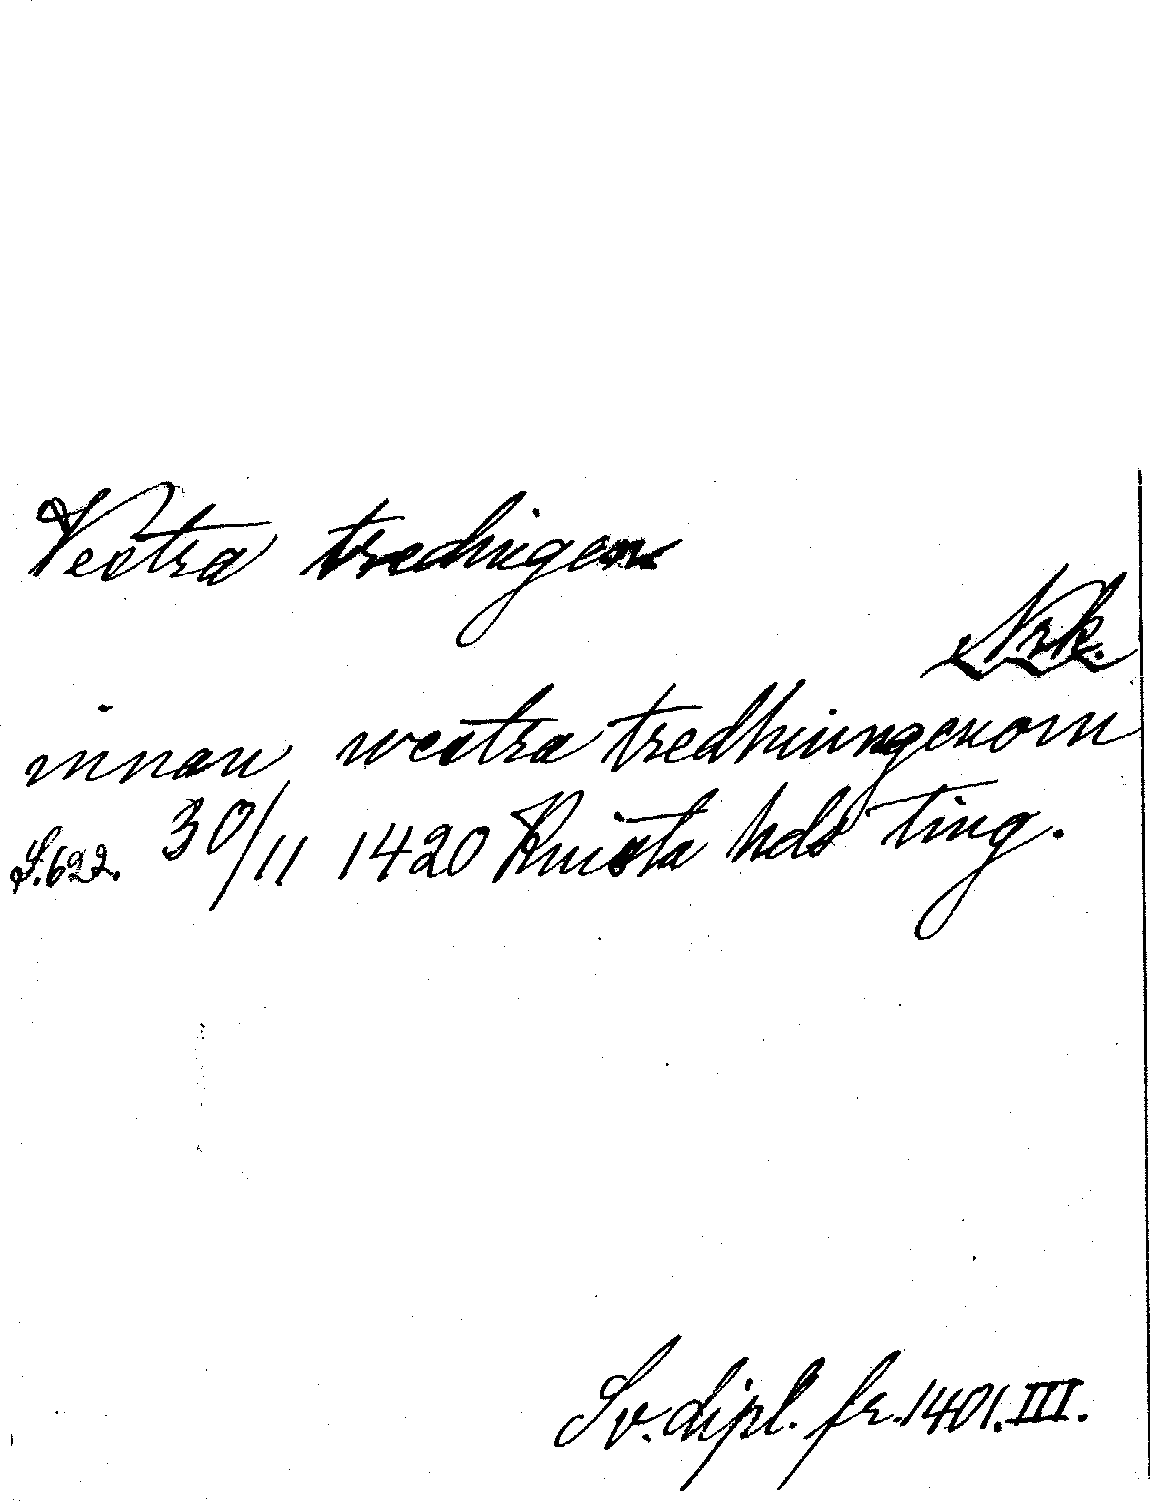 Vestra tredingen
Nrk.
innan westra tredhiungenom
S.622. 30/11 1420 Knista hds ting.
Sv. dipl. fr. 1401. III.